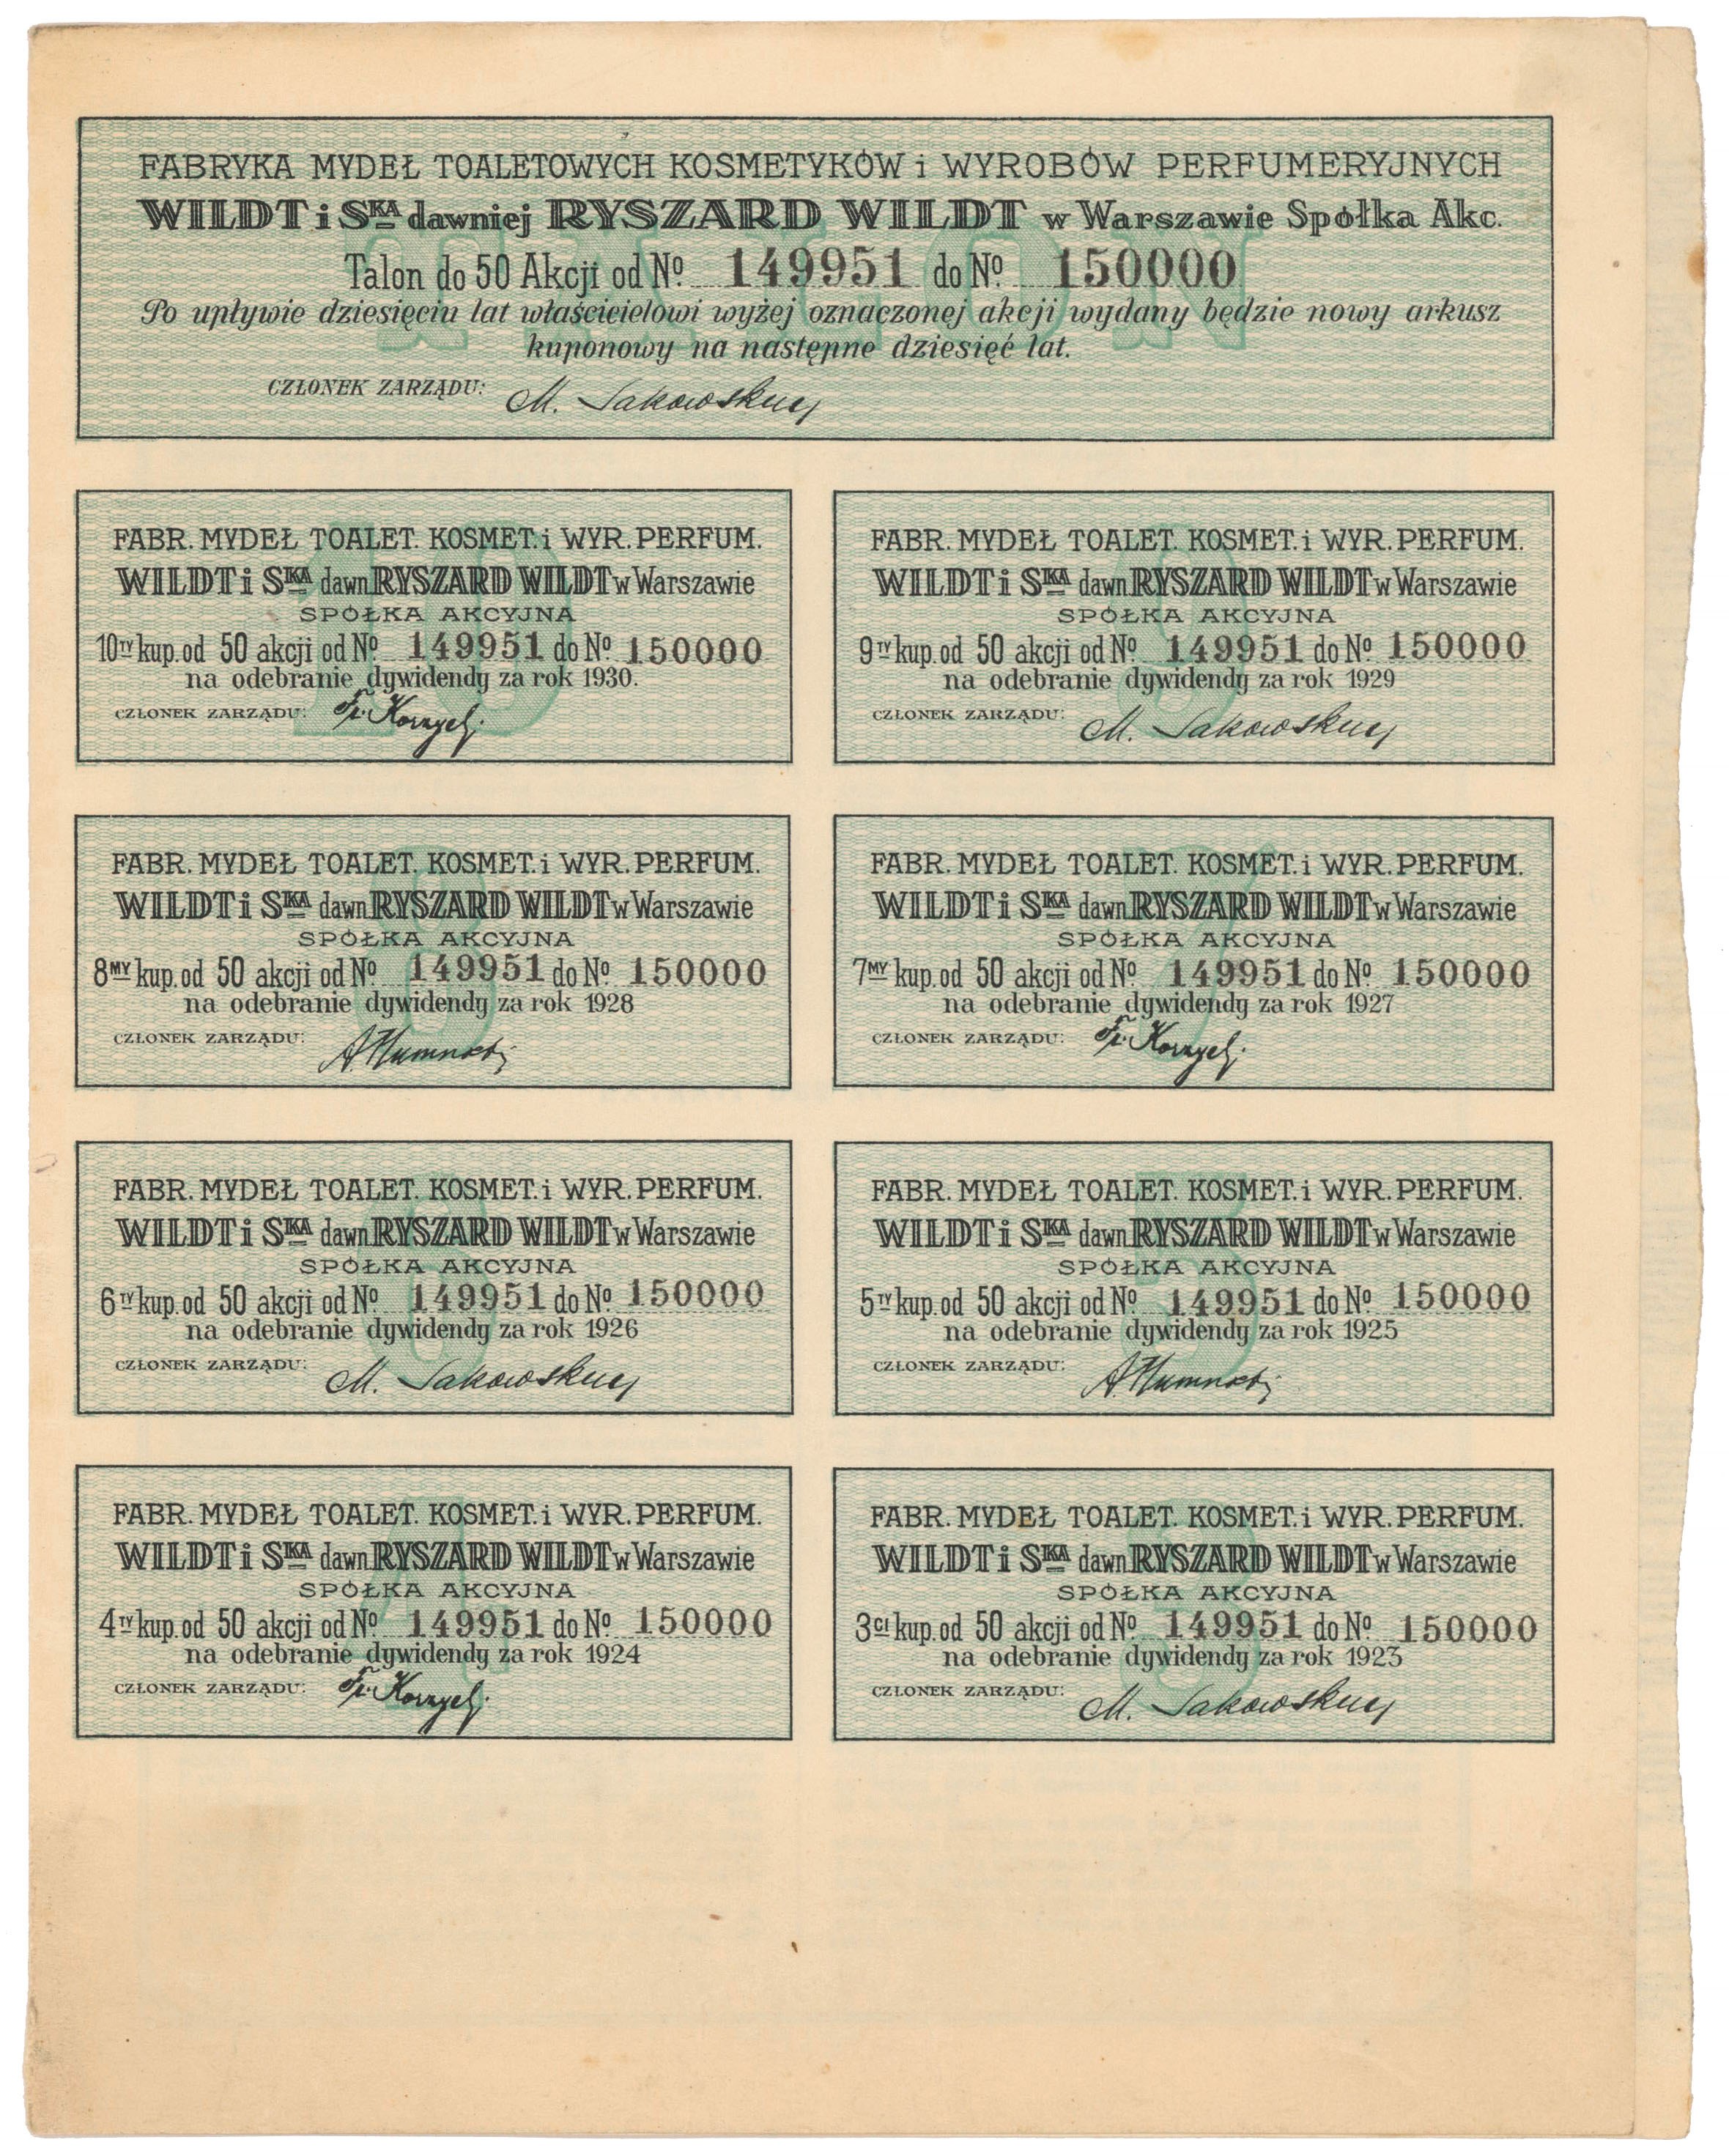 FABRYKA MYDEŁ TOALETOWYCH KOSMETYKÓW i WYROBÓW PERFUMERYJNYCH
WILDT i SKA dawniej RYSZARD WILDT w Warszawie Spółka Akc.
Talon do 50 Akcji od No 149951 do No 150000
Po upływie dziesięciu lat właścicielowi wyżej oznaczonej akcji wydany będzie nowy arkusz
kuponowy na następne dziesięć lat.
CZŁONEK ZARZĄDU:
FABR. MYDEŁ TOALET. KOSMET. i WYR. PERFUM.
WILDT i SKA dawn RYSZARD WILDT w Warszawie
SPÓŁKA AKCYJNA
10TY kup. od 50 akcji od No 149951 do No 150000
na odebranie dywidendy za rok 1930.
CZŁONEK ZARZĄDU:
FABR. MYDEŁ TOALET. KOSMET. i WYR. PERFUM.
WILDT i SKA dawn RYSZARD WILDT w Warszawie
SPÓŁKA AKCYJNA
9TY kup. od 50 akcji od No 149951 do No 150000
na odebranie dywidendy za rok 1929
CZŁONEK ZARZĄDU:
FABR. MYDEŁ TOALET. KOSMET. i WYR. PERFUM.
WILDT i SKA dawn RYSZARD WILDT w Warszawie
SPÓŁKA AKCYJNA
8MY kup. od 50 akcji od No 149951 do No 150000
na odebranie dywidendy za rok 1928
CZŁONEK ZARZĄDU:
FABR. MYDEŁ TOALET. KOSMET. i WYR. PERFUM.
WILDT i SKA dawn RYSZARD WILDT w Warszawie
SPÓŁKA AKCYJNA
7MY kup. od 50 akcji od No 149951 do No 150000
na odebranie dywidendy za rok 1927
CZŁONEK ZARZĄDU:
FABR. MYDEŁ TOALET. KOSMET. i WYR. PERFUM.
WILDT i SKA dawn RYSZARD WILDT w Warszawie
SPÓŁKA AKCYJNA
6TY kup. od 50 akcji od No 149951 do No 150000
na odebranie dywidendy za rok 1926
CZŁONEK ZARZĄDU:
FABR. MYDEŁ TOALET. KOSMET. i WYR. PERFUM.
WILDT i SKA dawn RYSZARD WILDT w Warszawie
SPÓŁKA AKCYJNA
5TY kup. od 50 akcji od No 149951 do No 150000
na odebranie dywidendy za rok 1925
CZŁONEK ZARZĄDU:
FABR. MYDEŁ TOALET. KOSMET. i WYR. PERFUM.
WILDT i SKA dawn RYSZARD WILDT w Warszawie
SPÓŁKA AKCYJNA
4TY kup. od 50 akcji od No 149951 do No 150000
na odebranie dywidendy za rok 1924
CZŁONEK ZARZĄDU:
FABR. MYDEŁ TOALET. KOSMET. i WYR. PERFUM.
WILDT i SKA dawn RYSZARD WILDT w Warszawie
SPÓŁKA AKCYJNA
3CI kup. od 50 akcji od No 149951 do No 150000
na odebranie dywidendy za rok 1923
CZŁONEK ZARZĄDU: